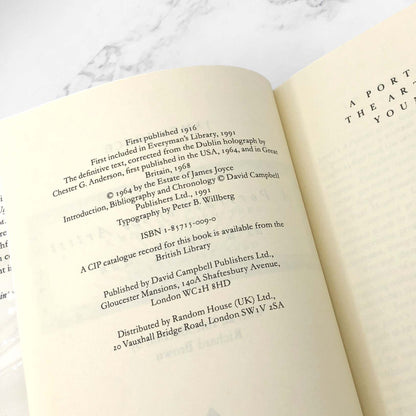 First published 1916
First included in Everyman's Library, 1991
The definitive text, corrected from the Dublin holograph by
Chester G. Anderson, first published in the USA, 1964, and in Great
Britain, 1968
© 1964 by the Estate of James Joyce
Introduction, Bibliography and Chronology © David Campbell
Publishers Ltd., 1991
Typography by Peter B. Willberg
ISBN 1-85715-009-0
A CIP catalogue record for this book is available from the
British Library
Published by David Campbell Publishers Ltd.,
Gloucester Mansions, 140A Shaftesbury Avenue,
London WC2H 8HD
Distributed by Random House (UK) Ltd.,
20 Vauxhall Bridge Road, London SW1V 2SA
A PORT
THE AR
YOUN